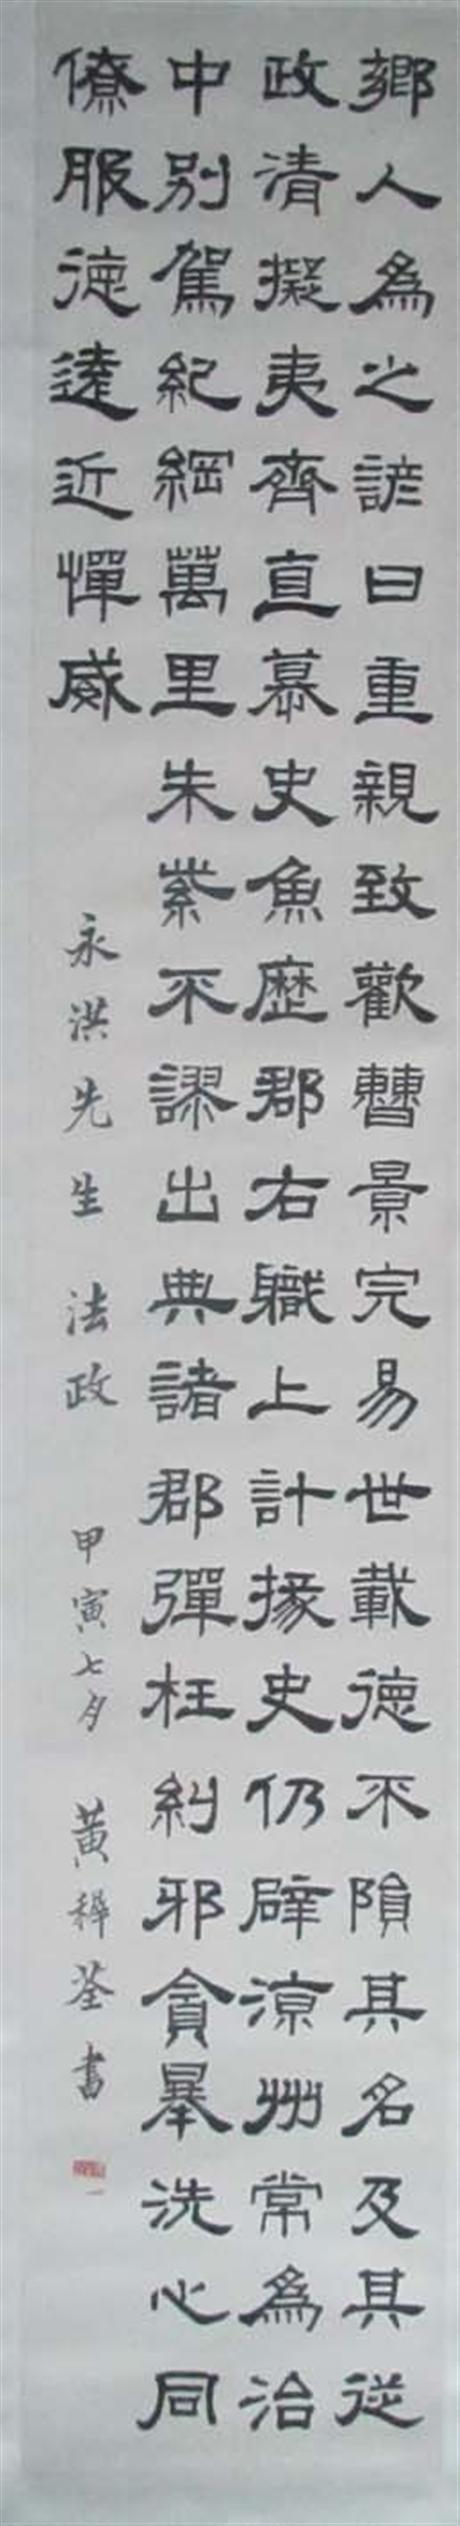 鄉人為之諺曰重親致歡曹景完易世載德不隕其名及其從
政清擬夷齊直慕史魚歷郡右職上計掾史仍辟涼州常為治
中別駕紀綱萬里朱紫不謬出典諸郡彈枉糾邪貪暴洗心同
僚服德遠近憚威
永洪先生 法政 甲寅七夕 黃稺荃書